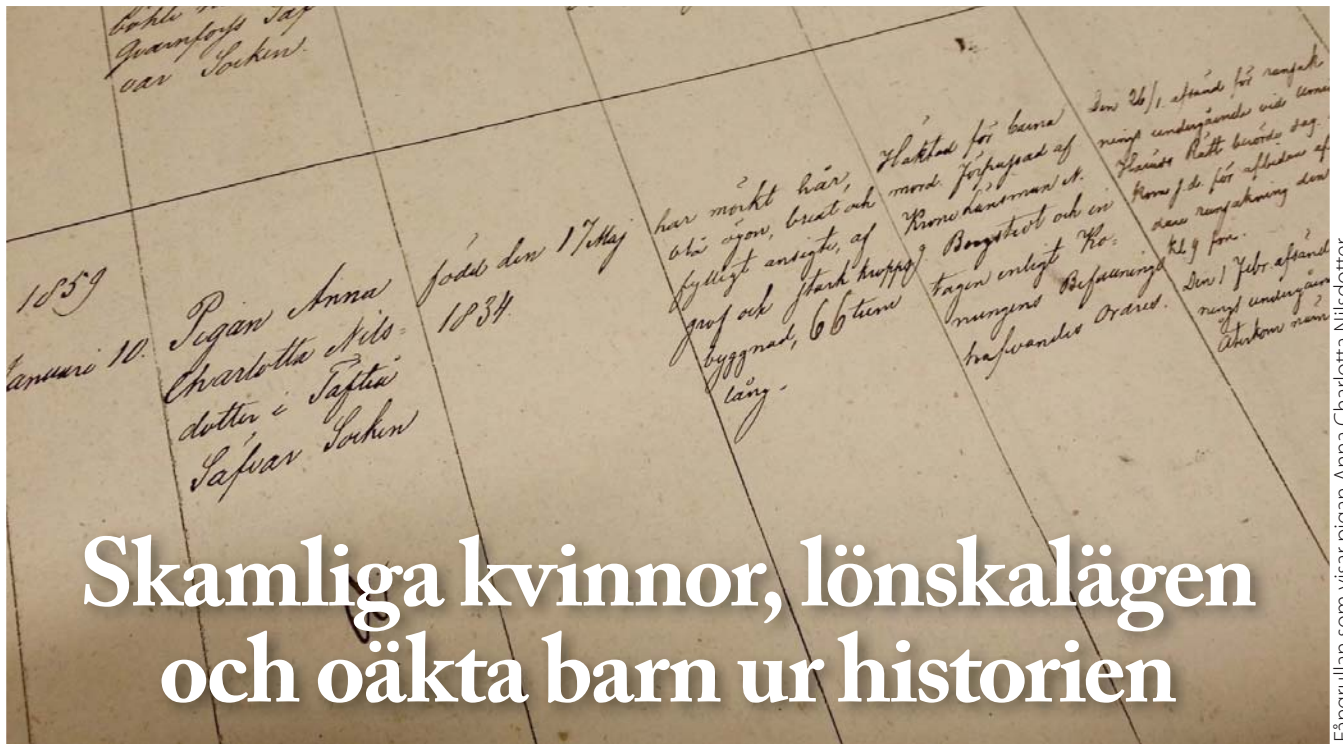 Qvarnfors Säf
var Socken.
1859
Januari 10.
Pigan Anna
Charlotta Nils-
dotter i Täfteå
Säfvar Socken
född den 17 Maj
1834.
har mörkt hår,
blå ögon, bredt och
fylligt ansigte, af
grof och stark kropps
byggnad, 66 tum
lång.
Häktad för barna
mord. Förpassad af
Krono Länsman N.
Borgstedt och in
tagen enligt Ko-
nungens Befallnings
hafvandes Ordres.
Den 26/1. afsänd för ransak
nings undergående vide Umeå
Härads Rätt berörde dag.
kom s. d. för afbidan af
ransakning den
kl. 9 f.m.
Den 1 Febr. afsänd
nings undergåen
Återkom
Skamliga kvinnor, lönskalägen
och oäkta barn ur historien
Fångrullan som visar pigan Anna Charlotta Nilsdotter